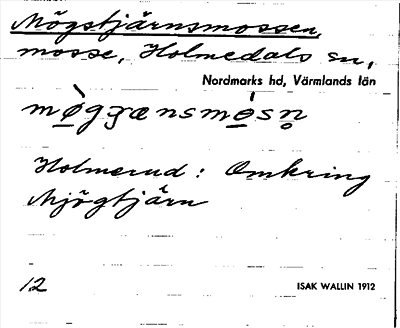 Mögstjärnsmossen,
mosse, Holmedals sn,
Nordmarks hd, Värmlands län
mø̀gʒænsmósn̥
Holmerud: Omkring
Mjögtjärn
12 ISAK WALLIN 1912